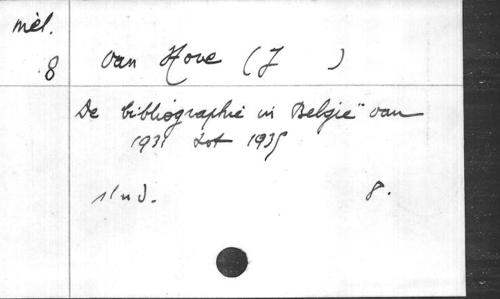 mèl.
8
van Hove (J )
De bibliographie in België van
1931 tot 1935
s.l.n.d. 8.